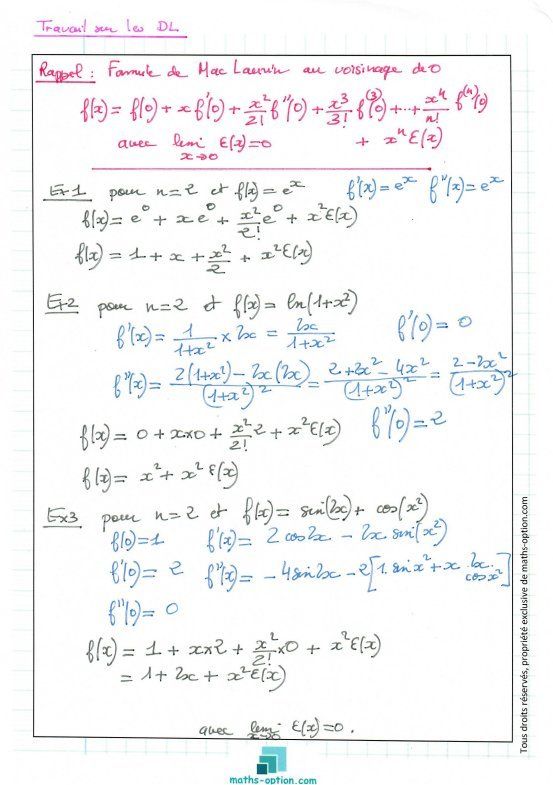 Travail sur les DL
Rappel : Formule de Mac Laurin au voisinage de 0
f(x) = f(0) + x f'(0) + x²/2! f''(0) + x³/3! f⁽³⁾(0) + ... + xⁿ/n! f⁽ⁿ⁾(0)
avec lim x→0 ε(x) = 0 + xⁿ ε(x)
Ex1 pour n = 2 et f(x) = eˣ f'(x) = eˣ f''(x) = eˣ
f(x) = e⁰ + x e⁰ + x²/2! e⁰ + x² ε(x)
f(x) = 1 + x + x²/2 + x² ε(x)
Ex2 pour n = 2 et f(x) = ln(1+x²)
f'(x) = 1/(1+x²) × 2x = 2x/(1+x²) f'(0) = 0
f''(x) = (2(1+x²) - 2x(2x))/(1+x²)² = (2+2x² - 4x²)/(1+x²)² = (2-2x²)/(1+x²)²
f''(0) = 2
f(x) = 0 + x×0 + x²/2! 2 + x² ε(x)
f(x) = x² + x² ε(x)
Ex3 pour n = 2 et f(x) = sin(2x) + cos(x²)
f(0) = 1 f'(x) = 2 cos 2x - 2x sin(x²)
f'(0) = 2 f''(x) = -4 sin 2x - 2[1. sin x² + x 2x cos x²]
f''(0) = 0
f(x) = 1 + x×2 + x²/2! ×0 + x² ε(x)
= 1 + 2x + x² ε(x)
avec lim x→0 ε(x) = 0.
maths-option.com
Tous droits réservés, propriété exclusive de maths-option.com